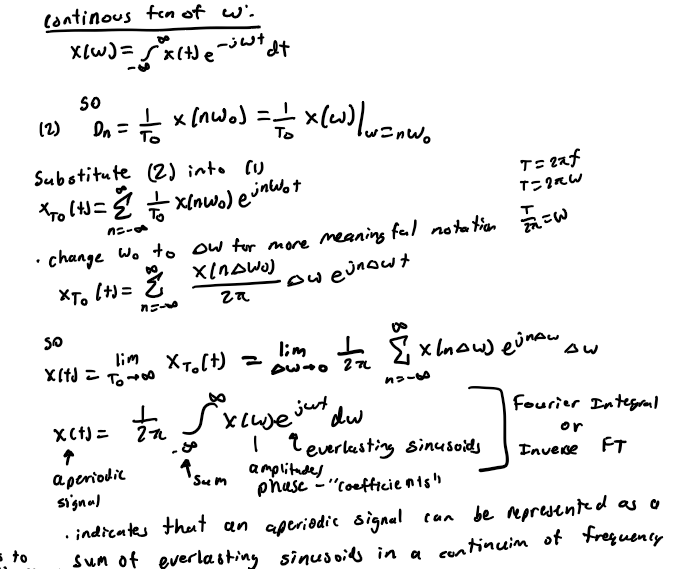 continous fcn of ω:
X(ω) = ∫_{-∞}^{∞} x(t) e^{-jωt} dt
so
(2) D_n = 1/T_0 X(nω_0) = 1/T_0 X(ω)|_{ω=nω_0}
Substitute (2) into (1)
x_{T_0}(t) = Σ_{n=-∞}^{∞} 1/T_0 X(nω_0) e^{jnω_0t}
T = 2πf
T = 2πω
T/2π = ω
· change ω_0 to Δω for more meaningful notation
x_{T_0}(t) = Σ_{n=-∞}^{∞} X(nΔω_0)/2π Δω e^{jnΔωt}
so
x(t) = lim_{T_0→∞} x_{T_0}(t) = lim_{Δω→0} 1/2π Σ_{n=-∞}^{∞} X(nΔω) e^{jnΔω} Δω
x(t) = 1/2π ∫_{-∞}^{∞} X(ω) e^{jωt} dω
↑ aperiodic signal
↑ sum
| amplitudes/
phase - "coefficients"
↑ everlasting sinusoids
] Fourier Integral
or
Inverse FT
· indicates that an aperiodic signal can be represented as a
to
sum of everlasting sinusoids in a continuim of frequency